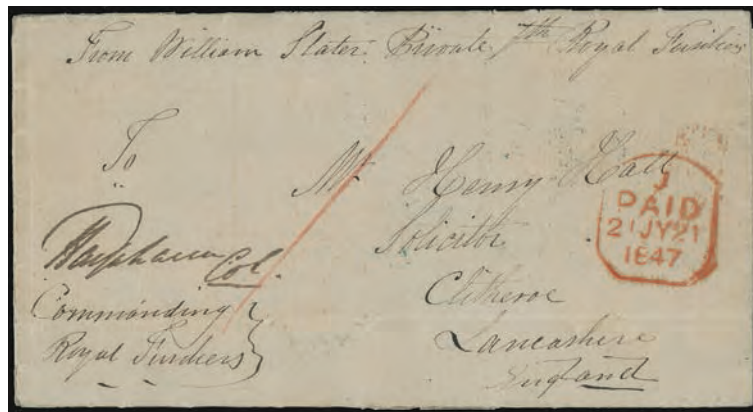 From William Slater Private 7th Royal Fusiliers
To
Mr Henry Hall
Solicitor
Clitheroe
Lancashire
England
Col.
Commanding
Royal Fusiliers
J
PAID
21 JY 21
1847